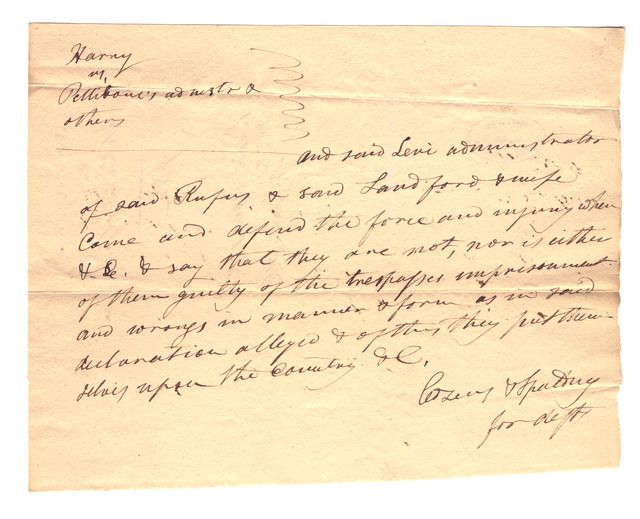 Harry
vs.
Pettibone's admstr &
others
and said Levi administrator
of said Rufus & said Landford & wife
Come and defend the force and injury when
& Dc. & say that they are not, nor is either
of them guilty of the trespasses imprisonment
and wrongs in manner & form as in said
declaration alleged & of this they put them
selves upon the Country &C.
& Spalding
for defts